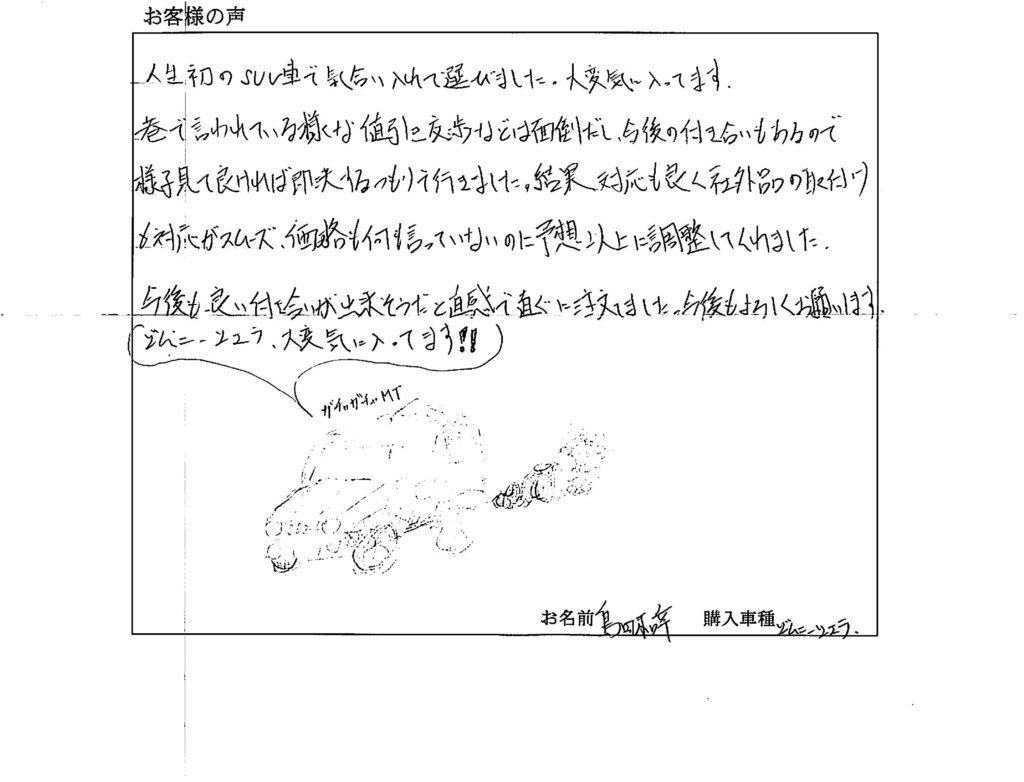 お客様の声
人生初のSUV車で気合い入れて選びました。大変気に入ってます.
巷で言われている様な値引き交渉などは面倒だし、今後の付き合いもあるので
様子見て良ければ即決するつもりで行きました。結果、対応も良く社外品の取付け
も対応がスムーズ、価格も何も言っていないのに予想以上に調整してくれました.
今後も良い付き合いが出来そうだと直感で直ぐに注文しました。今後もよろしくお願いします.
ジムニーシエラ、大変気に入ってます!!
ガチャガチャMT
お名前 島田 購入車種 ジムニーシエラ.